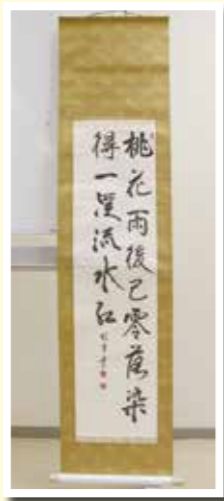 桃花雨後已零落染
得一溪流水紅